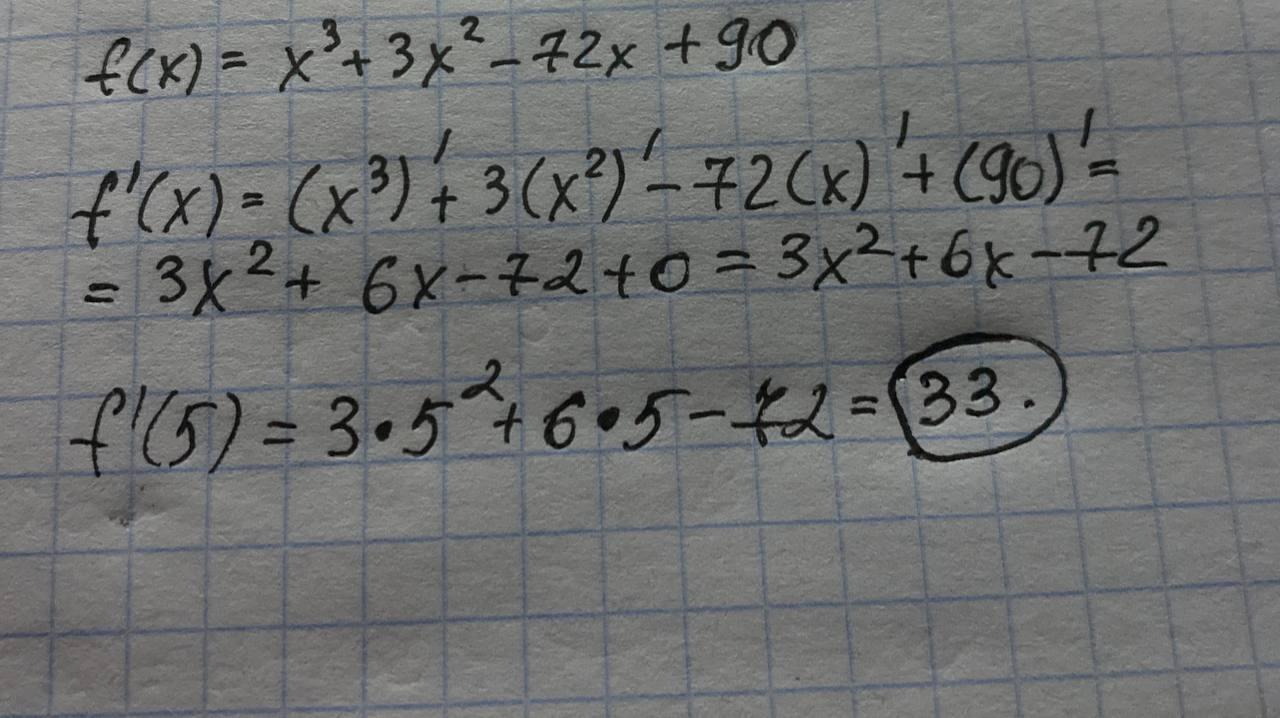 f(x) = x³ + 3x² - 72x + 90
f'(x) = (x³)' + 3(x²)' - 72(x)' + (90)' =
= 3x² + 6x - 72 + 0 = 3x² + 6x - 72
f'(5) = 3·5² + 6·5 - 72 = 33.